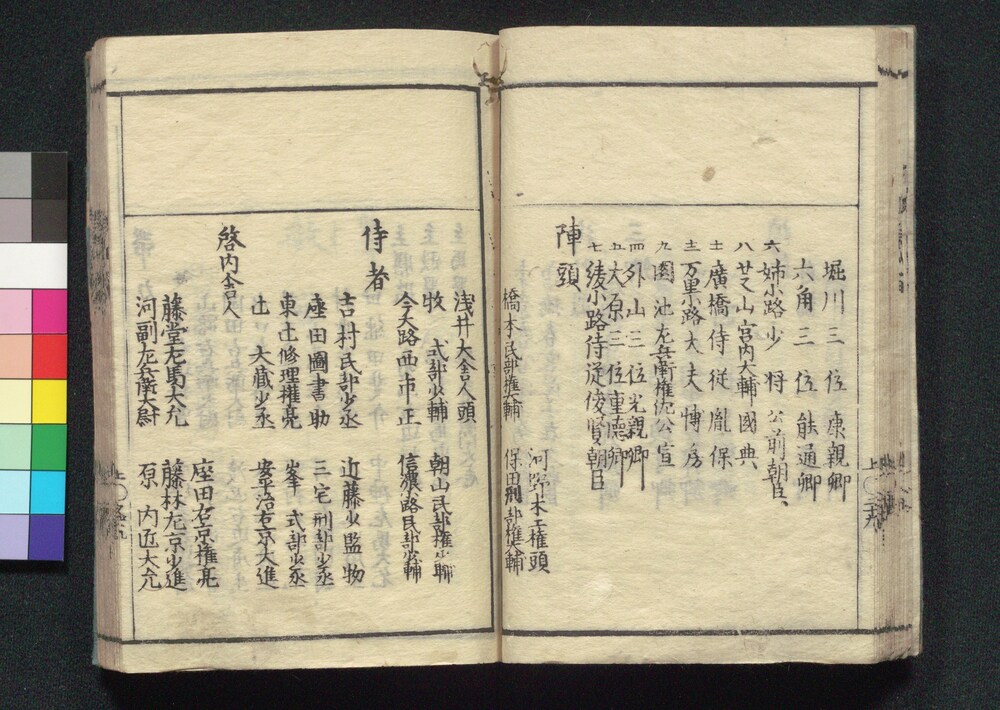 堀川三位康親卿
六角三位能通卿
六 姉小路少将公前朝臣、
八 廿文山宮内大輔國典
十一 廣橋侍従胤保
十二 万里小路大夫博房
九 園池左兵衛権佐公宣
四 外山三位光親卿
五 大原三位重徳卿
七 綾小路侍従俊賢朝臣
陣頭
河野木工権頭
橋本民部権大輔 保田刑部権大輔
浅井大舎人頭 朝山民部権少輔
牧 式部少輔
今大路西市正 信濃小路民部少輔
侍者
吉村民部少丞 近藤少監物
座田圖書助 三宅刑部少丞
東辻修理権亮 峯 式部少丞
辻 大蔵少丞 安治右京大進
啓内舎人
座田右京権亮
藤堂左馬大允 藤林左京少進
河副左兵衛大尉 原 内近大允